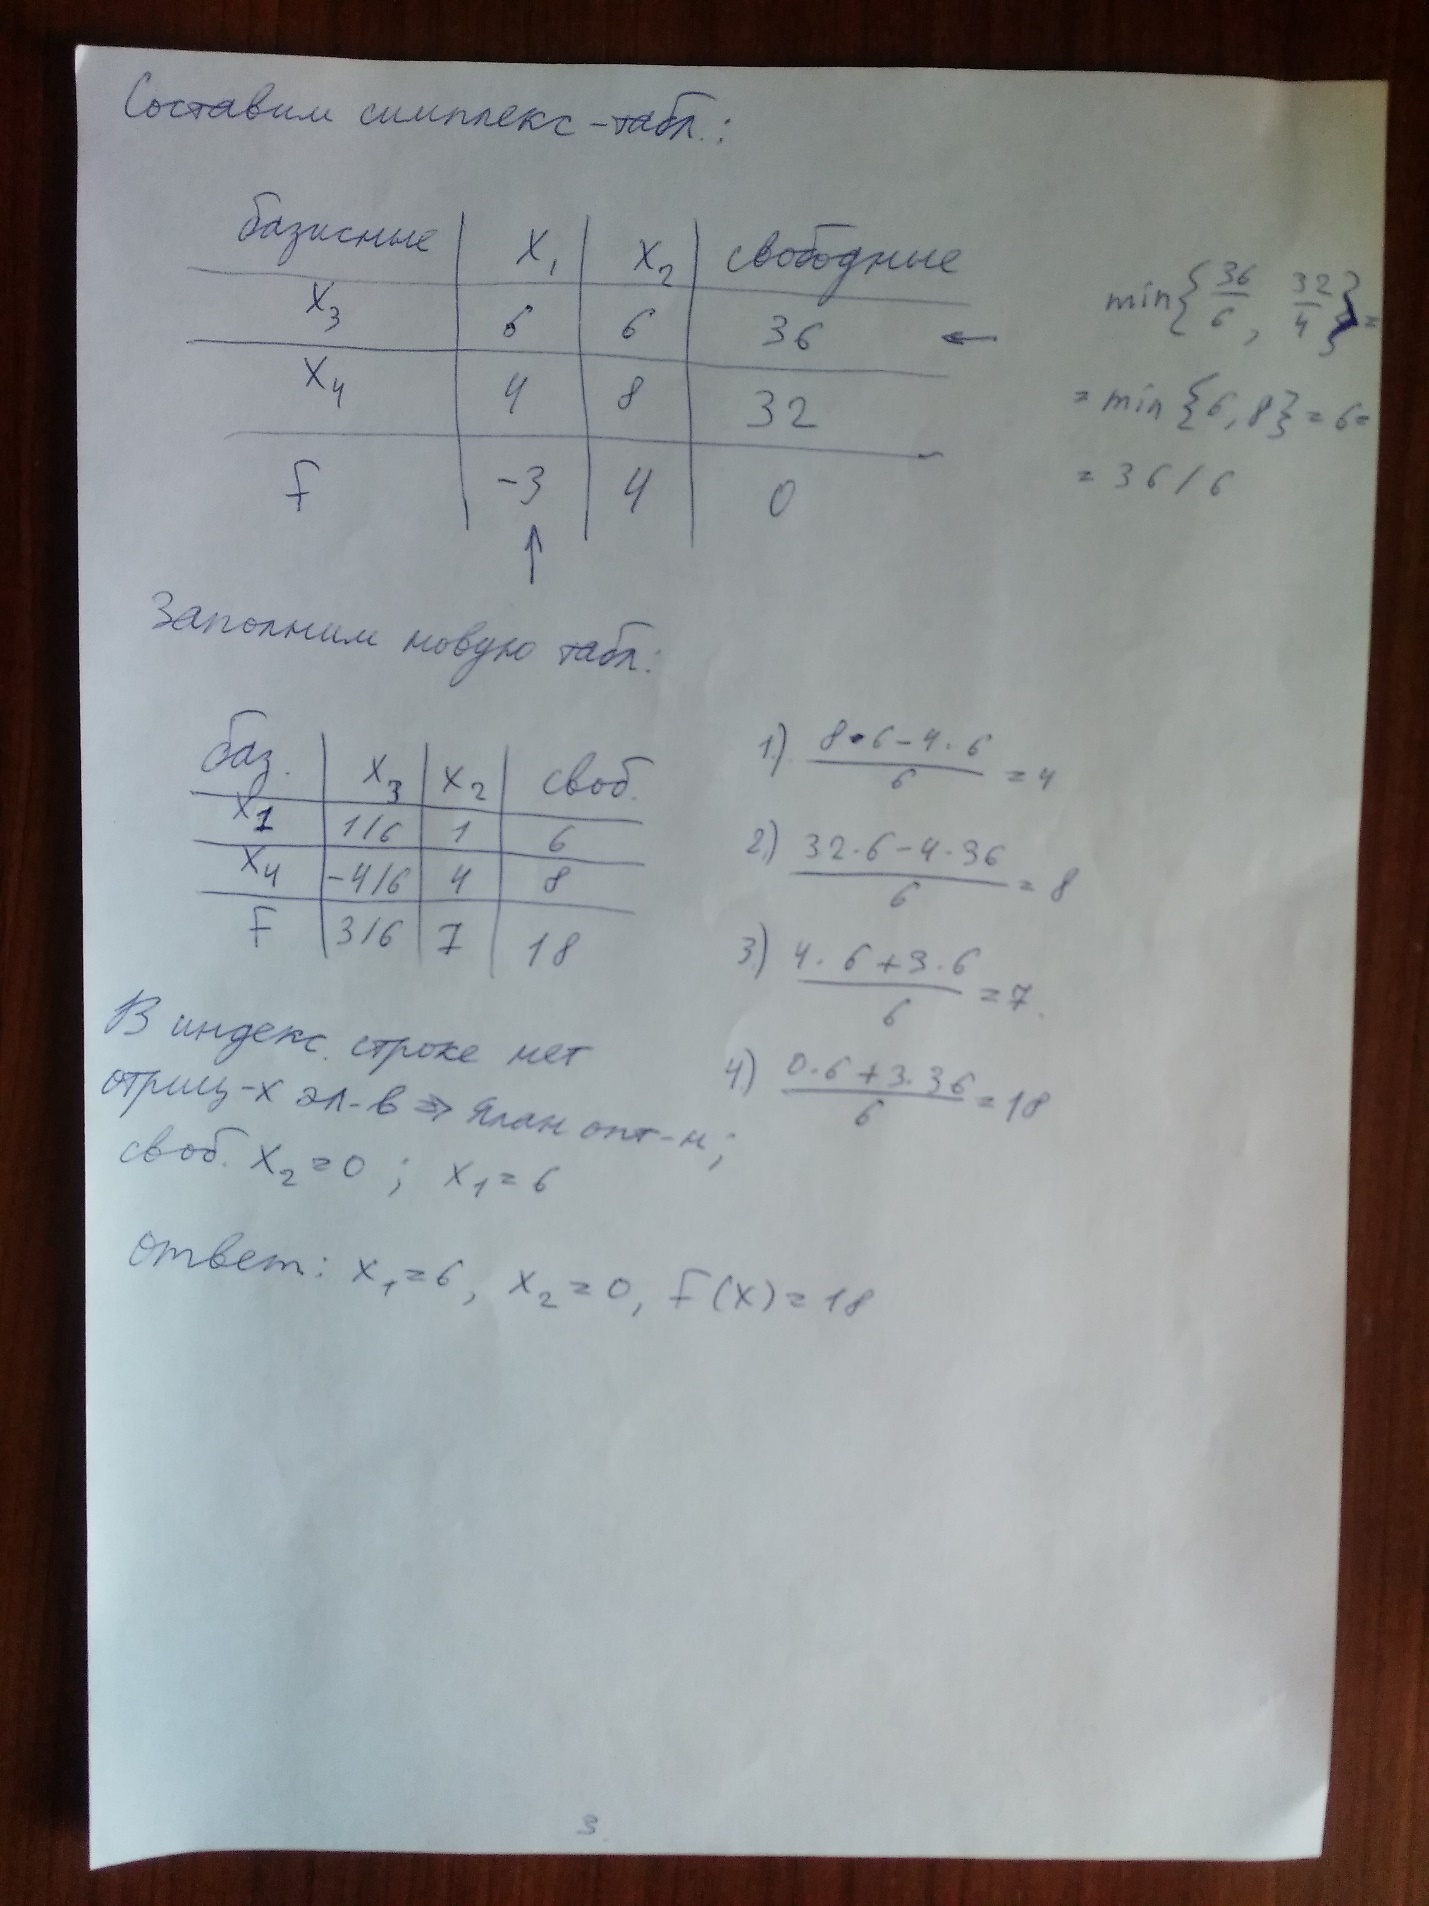 Составим симплекс-табл.:
базисные x₁ x₂ свободные
x₃ 6 6 36 ←
x₄ 4 8 32
F -3 4 0
↑
min{36/6, 32/4} =
= min {6, 8} = 6 =
= 36/6
Заполним новую табл:
баз. x₃ x₂ своб.
x₁ 1/6 1 6
x₄ -4/6 4 8
F 3/6 7 18
1.) (8·6-4·6)/6 = 4
2.) (32·6-4·36)/6 = 8
3.) (4·6+3·6)/6 = 7.
4.) (0·6+3·36)/6 = 18
В индекс. строке нет
отриц-х эл-в ⇒ план опт-н;
своб. x₂=0 ; x₁=6
Ответ: x₁=6, x₂=0, F(x)=18
3